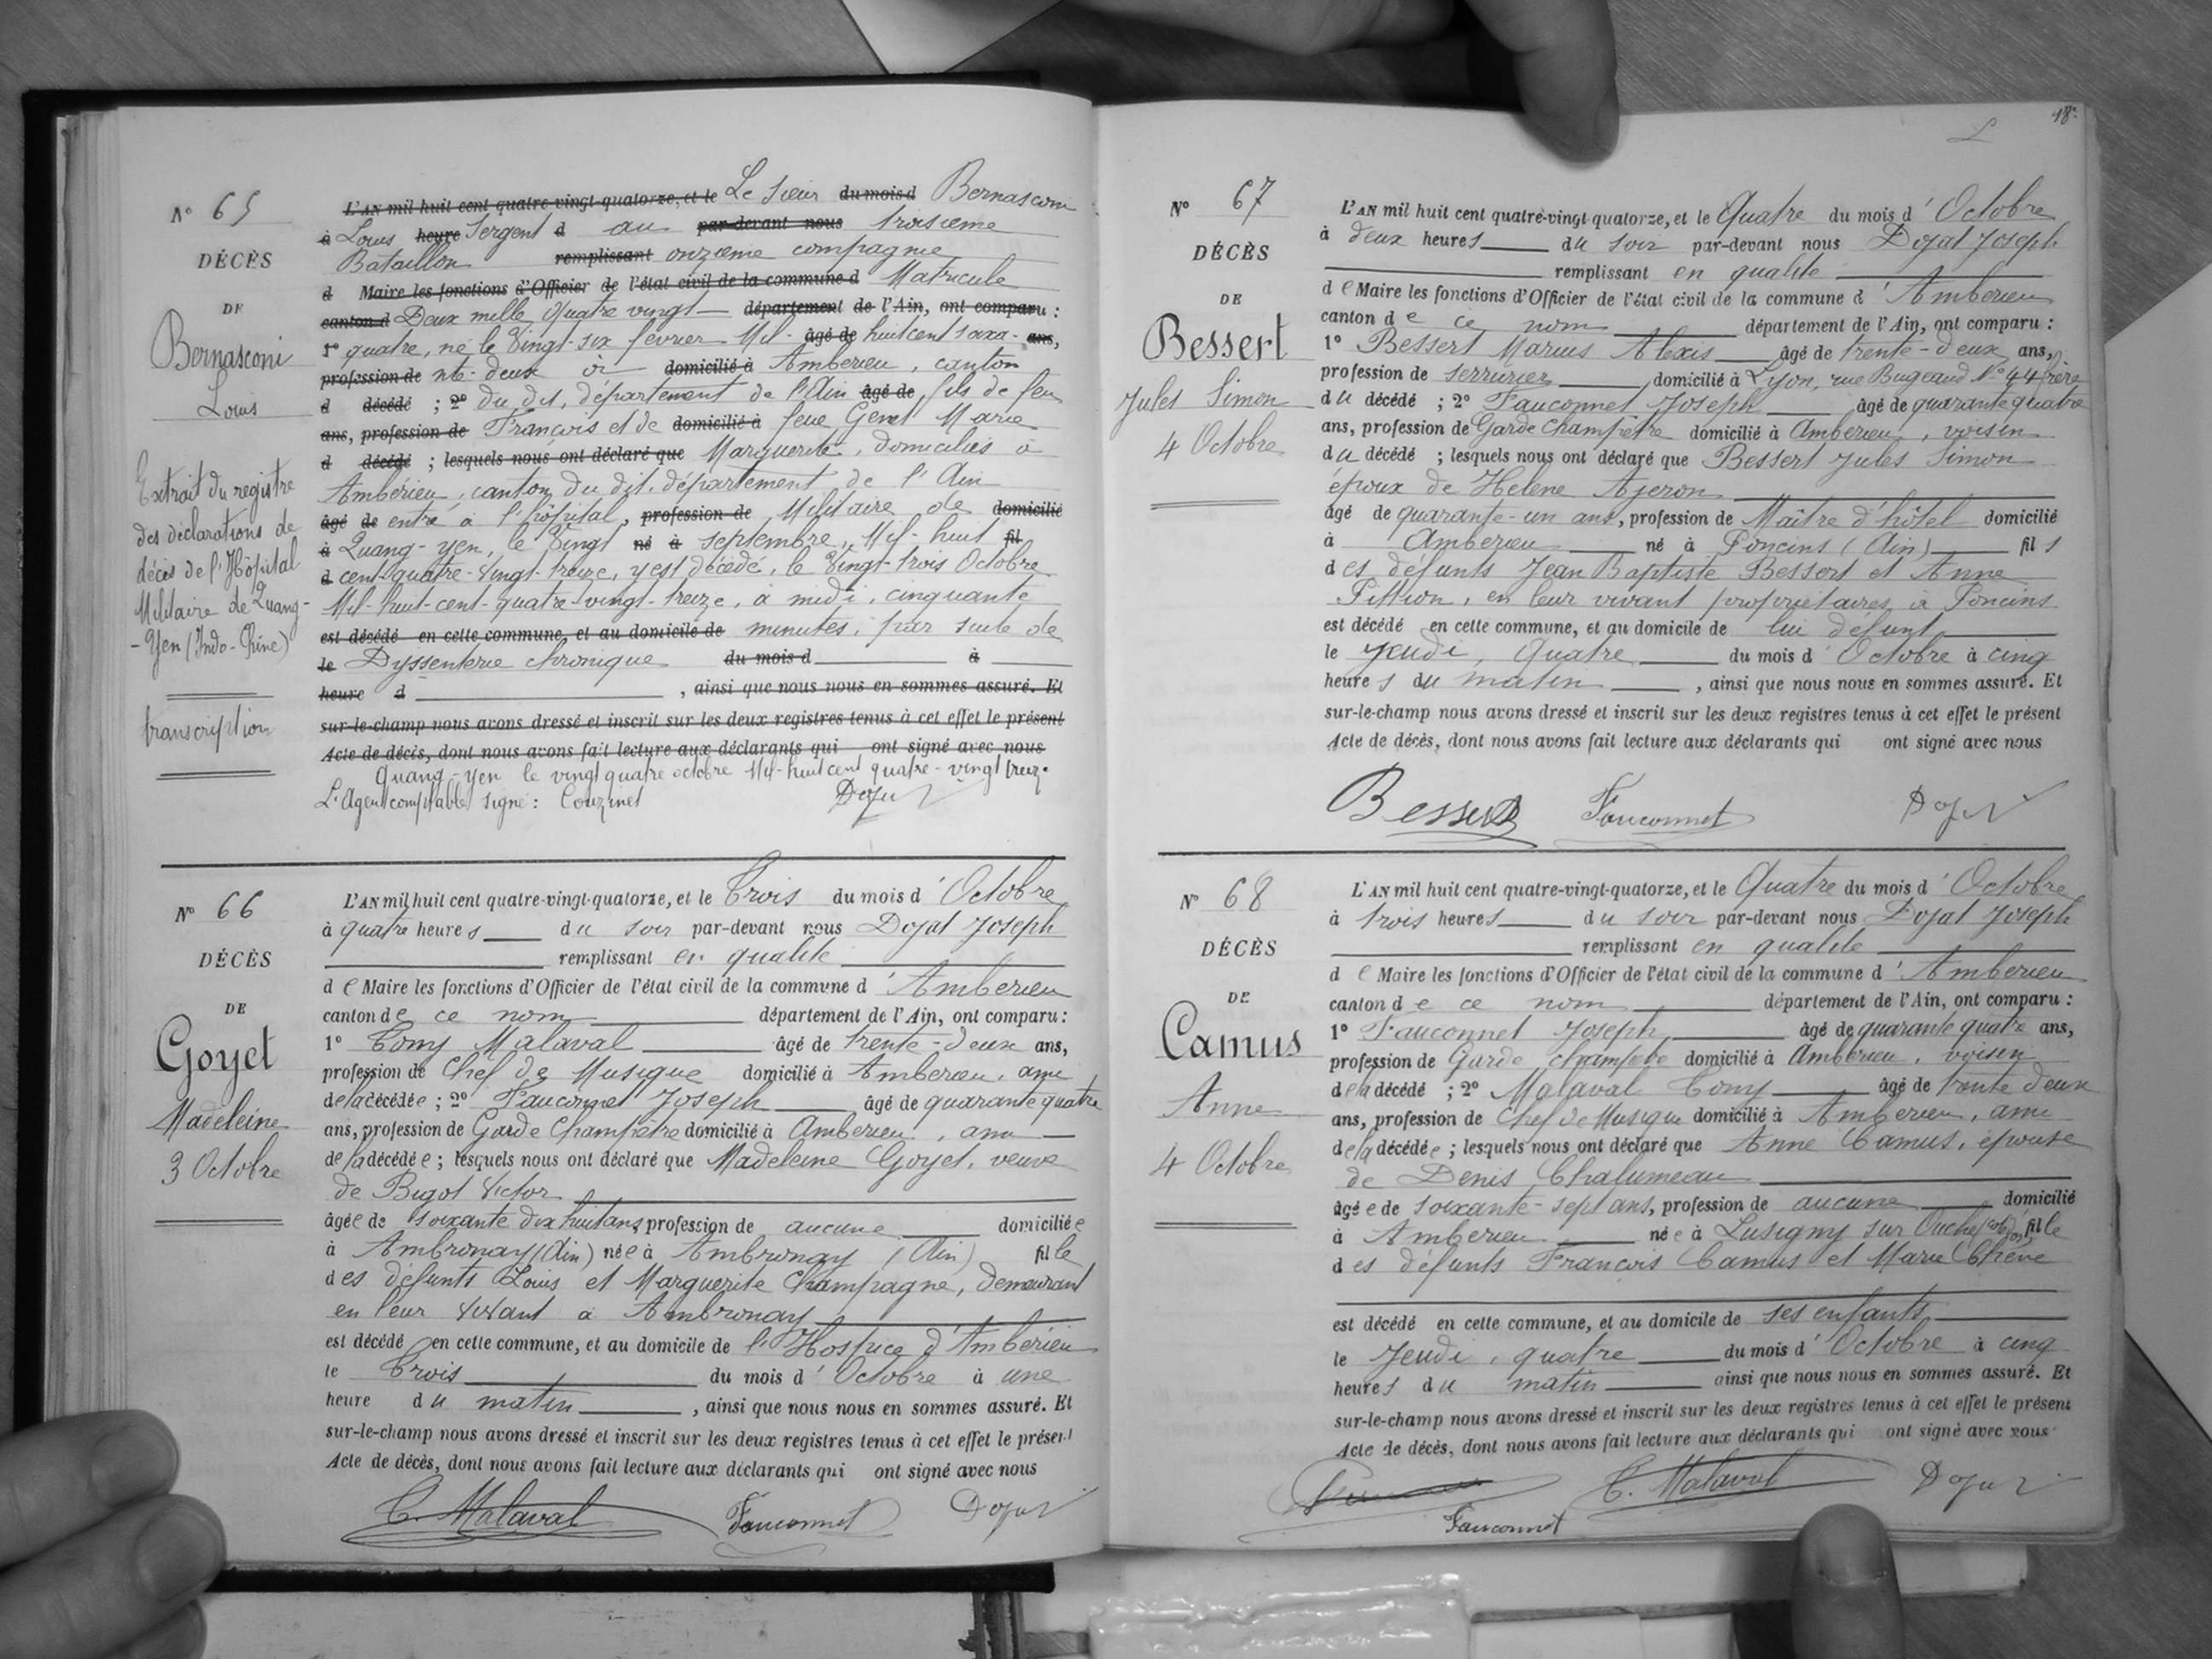 N° 65
DÉCÈS
DE
Bernasconi
Louis
Extrait du registre
des déclarations de
décès de l'Hôpital
Militaire de Quang-
-Yen (Indo-Chine)
transcription
L'AN mil huit cent quatre-vingt-quatorze, et le Le sieur du mois d Bernasconi
à Louis heure Sergent d au par-devant nous troisième
Bataillon remplissant onzième compagnie
d Maire les fonctions d'Officier de l'état civil de la commune d Matricule
canton d Deux mille Quatre vingt — département de l'Ain, ont comparu :
1° quatre, né le Vingt-six février Mil- âgé de huit cent soixa- ans,
profession de nte-deux à domicilié à Amberieu, canton
d décédé ; 2° du dit, département de l'Ain âgé de fils de feu
ans, profession de François et de domicilié à feue Genet Marie
d décédé ; lesquels nous ont déclaré que Marguerite, domiciliés à
Ambérieu, canton du dit, département de l'Ain
âgé de entré à l'hôpital, profession de Militaire de domicilié
à Quang-yen, le Vingt né à septembre, Mil-huit fil
d cent-quatre-vingt-treize, y est décédé, le Vingt-trois Octobre
Mil-huit-cent-quatre-vingt-treize, à midi, cinquante
est décédé en cette commune, et au domicile de minutes, par suite de
le Dyssenterie chronique du mois d à
heure d , ainsi que nous nous en sommes assuré. Et
sur-le-champ nous avons dressé et inscrit sur les deux registres tenus à cet effet le présent
Acte de décès, dont nous avons fait lecture aux déclarants qui ont signé avec nous
Quang-yen le vingt quatre octobre Mil-huit cent quatre-vingt treiz.
L'Agent comptable signé : Couzinet Dojat
N° 66
DÉCÈS
DE
Goyet
Madeleine
3 Octobre
L'AN mil huit cent quatre-vingt-quatorze, et le Trois du mois d'Octobre
à quatre heures du soir par-devant nous Dojat Joseph
remplissant en qualité
de Maire les fonctions d'Officier de l'état civil de la commune d'Amberieu
canton de ce nom département de l'Ain, ont comparu :
1° Tony Malaval âgé de trente-deux ans,
profession de Chef de Musique domicilié à Amberieu, ami
de la décédée ; 2° Fauconnet Joseph âgé de quarante quatre
ans, profession de Garde Champêtre domicilié à Amberieu, ami
de la décédée ; lesquels nous ont déclaré que Madeleine Goyet, veuve
de Bigot Victor
âgée de soixante dix huit ans, profession de aucune domiciliée
à Ambronay (Ain) née à Ambronay (Ain) fille
des défunts Louis et Marguerite Champagne, demeurant
en leur vivant à Ambronay
est décédé en cette commune, et au domicile de l'Hospice d'Ambérieu
le Trois du mois d'Octobre à une
heure du matin , ainsi que nous nous en sommes assuré. Et
sur-le-champ nous avons dressé et inscrit sur les deux registres tenus à cet effet le présent
Acte de décès, dont nous avons fait lecture aux déclarants qui ont signé avec nous
C. Malaval Fauconnet Dojat
18.
N° 67
DÉCÈS
DE
Bessert
Jules Simon
4 Octobre
L'AN mil huit cent quatre-vingt-quatorze, et le Quatre du mois d'Octobre
à deux heures du soir par-devant nous Dojat Joseph
remplissant en qualité
de Maire les fonctions d'Officier de l'état civil de la commune d'Amberieu
canton de ce nom département de l'Ain, ont comparu :
1° Bessert Marius Alexis âgé de trente-deux ans,
profession de serrurier domicilié à Lyon, rue Bugeaud N° 44 frère
du décédé ; 2° Fauconnet Joseph âgé de quarante quatre
ans, profession de Garde Champêtre domicilié à Amberieu, voisin
du décédé ; lesquels nous ont déclaré que Bessert Jules Simon
époux de Helene Ajeron
âgé de quarante-un ans, profession de Maître d'hôtel domicilié
à Amberieu né à Poncins (Ain) fils
des défunts Jean Baptiste Bessert et Anne
Pittion, en leur vivant propriétaires à Poncins
est décédé en cette commune, et au domicile de lui défunt
le Jeudi, Quatre du mois d'Octobre à cinq
heures du matin , ainsi que nous nous en sommes assuré. Et
sur-le-champ nous avons dressé et inscrit sur les deux registres tenus à cet effet le présent
Acte de décès, dont nous avons fait lecture aux déclarants qui ont signé avec nous
Bessert Fauconnet Dojat
N° 68
DÉCÈS
DE
Camus
Anne
4 Octobre
L'AN mil huit cent quatre-vingt-quatorze, et le Quatre du mois d'Octobre
à trois heures du soir par-devant nous Dojat Joseph
remplissant en qualité
de Maire les fonctions d'Officier de l'état civil de la commune d'Amberieu
canton de ce nom département de l'Ain, ont comparu :
1° Fauconnet Joseph âgé de quarante quatre ans,
profession de Garde champêtre domicilié à Amberieu, voisin
de la décédé ; 2° Malaval Tony âgé de trente deux
ans, profession de Chef de Musique domicilié à Amberieu, ami
de la décédée ; lesquels nous ont déclaré que Anne Camus, épouse
de Denis Chalumeau
âgée de soixante-sept ans, profession de aucune domicilié
à Amberieu née à Lusigny sur Ouche fille
des défunts François Camus et Marie Chêne
est décédé en cette commune, et au domicile de ses enfants
le Jeudi, quatre du mois d'Octobre à cinq
heures du matin ainsi que nous nous en sommes assuré. Et
sur-le-champ nous avons dressé et inscrit sur les deux registres tenus à cet effet le présent
Acte de décès, dont nous avons fait lecture aux déclarants qui ont signé avec nous
C. Malaval Dojat
Fauconnet